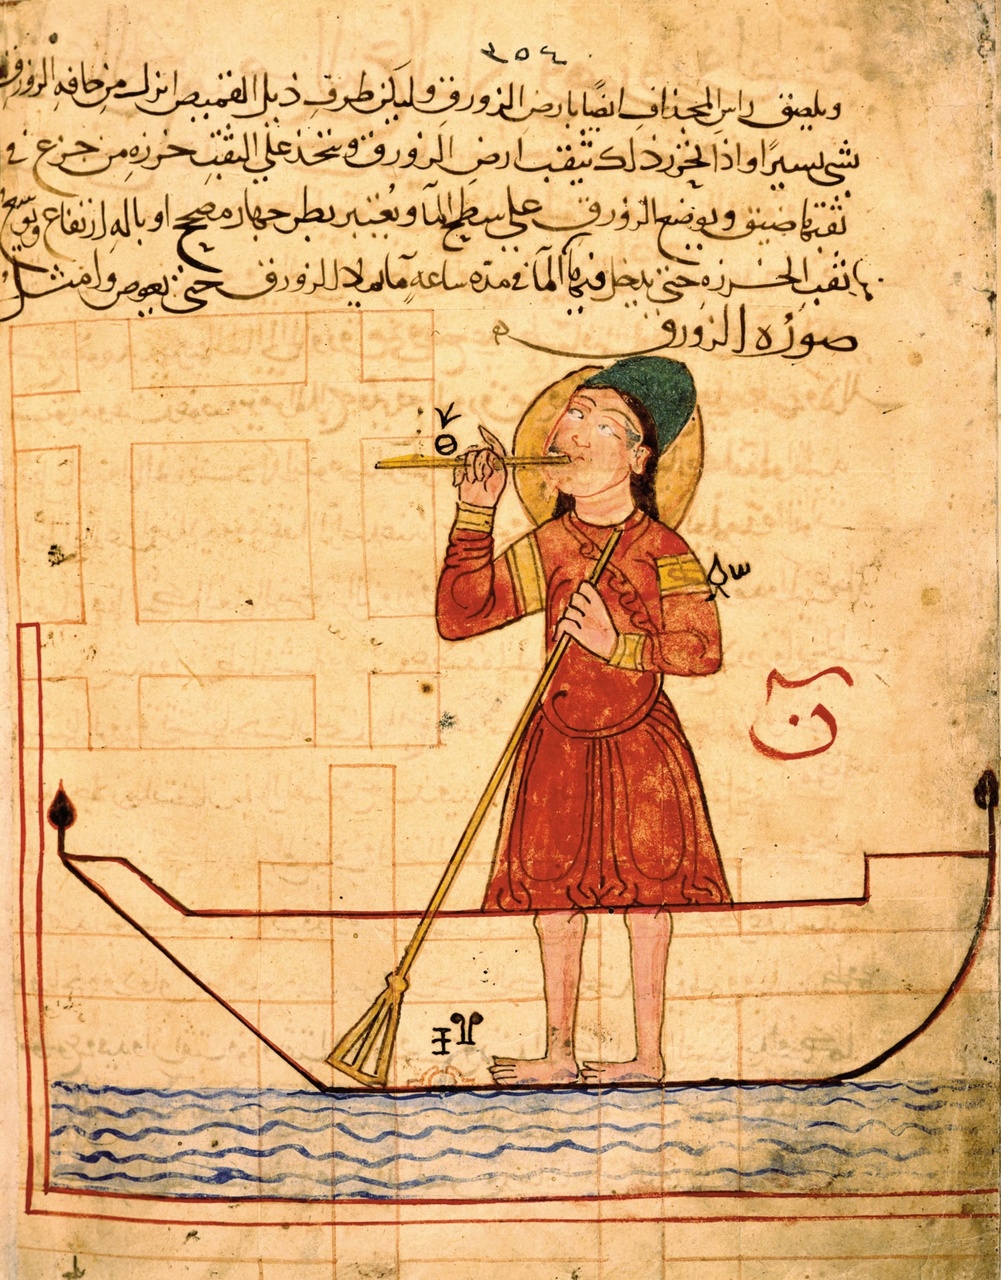 ٢٥٤
ويلصق راس المجذاف ايضًا بارض الزورق وليكن طرف ذيل القميص انزل من حافه الزورق
بشي يسيرًا واذا ذلك تثقب ارض الزورق ويتخذ على الثقب خرزه من جزع في
ثقبها ضيق ويوضع الزورق على سطح الما ويعتبر بطرجهار مصحح او باله ارتفاع ويوسع
ثقب الخرزه حتى يدخل فيها الما في مدة ساعه ما يملا الزورق حتى يغوص وامثل
صوره الزورق
ن